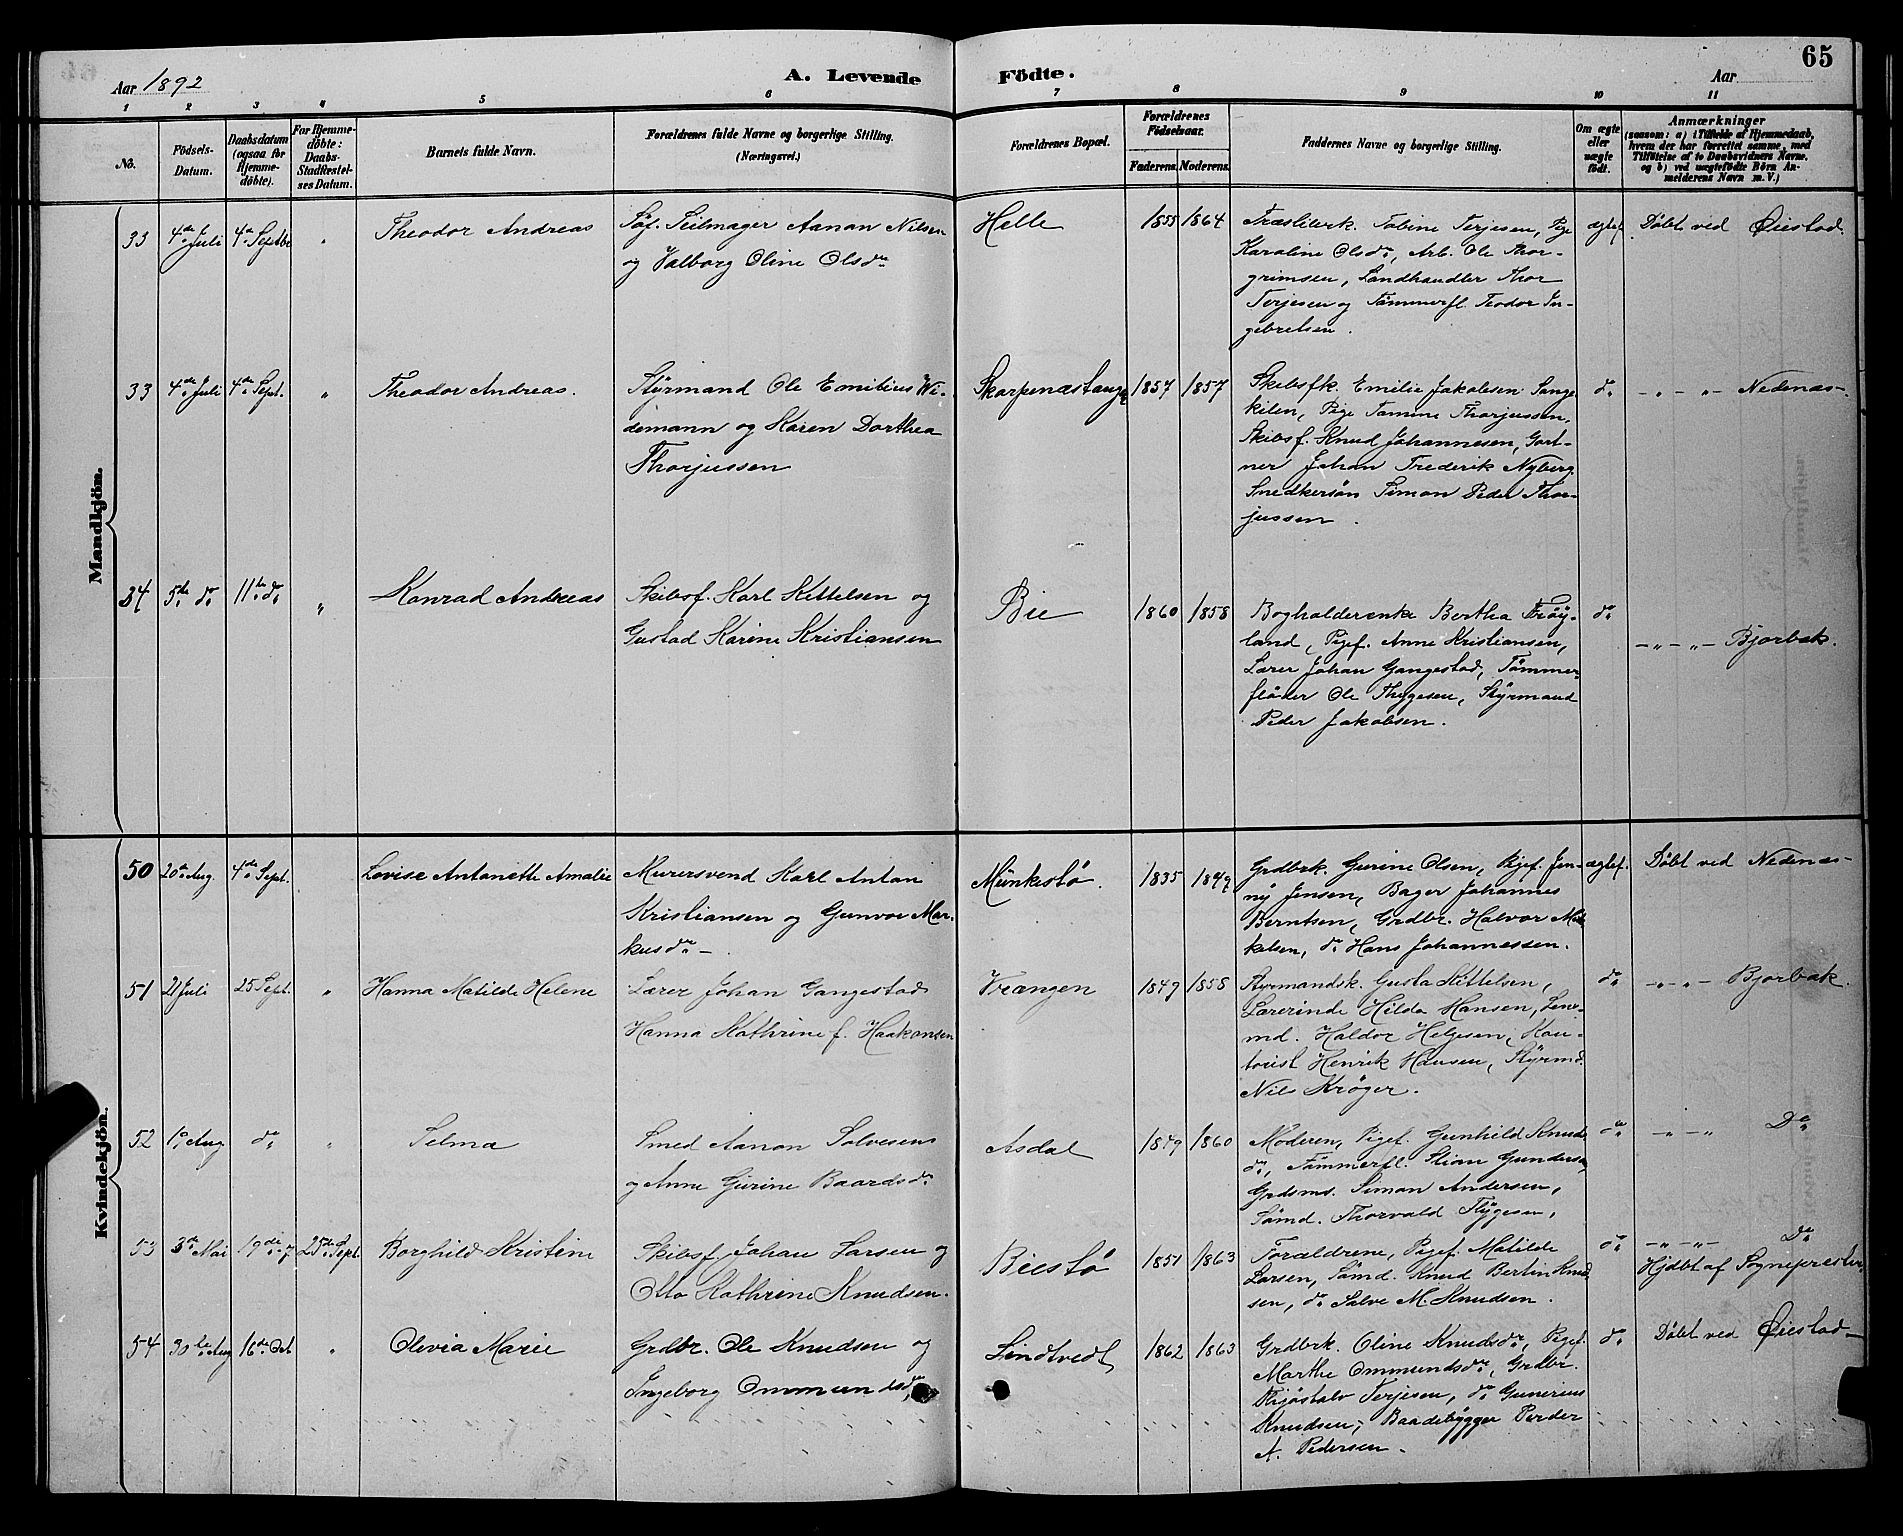 65
Aar 1892
A. Levende Födte.
Aar
1 2 3 4 5 6 7 8 9 10 11
No.
Födsels-Datum.
Daabsdatum (ogsaa for Hjemme-døbte).
For Hjemme-døbte: Daabs-Stadfæstel-ses Datum.
Barnets fulde Navn.
Forældrenes fulde Navne og borgerlige Stilling. (Næringsvei.)
Forældrenes Bopæl.
Forældrenes Födselsaar.
Faderens. Moderens.
Faddernes Navne og borgerlige Stilling.
Om ægte eller uægte født.
Anmærkninger
(saasom: a) i Tilfælde af Hjemmedaab, hvem der har forrettet samme, med Tilføielse af to Daabsvidners Navne, og b) ved uægtefødte Börn An-melderens Navn m. V.)
Mandkjön.
33 4de Juli 4de Septbr " Theodor Andreas
Søf. Seilmager Aanon Nilsen
og Valborg Oline Olsdr
Helle 1855 1864
Træslibrk. Tobine Terjesen, Pige
Karoline Olsdr, Arb. Ole Thor-
grimsen, Landhandler Thor
Terjesen og Tömmerfl. Teodor In-
gebretsen.
ægtef. Döbt ved Øiestad.
33 4de Juli 4de Sept. " Theodor Andreas.
Styrmand Ole Emilius Wi-
demann og Karen Dorthea
Thorjussen
Skarpenæstangen 1857 1857
Skibsfk. Emilie Jakobsen Sange-
kilen, Pige Tamine Thorjussen,
Skibsf. Knud Johannesen, Gart-
ner Johan Frederik Nyberg
Snedkersön Simon Peder Thor-
jussen.
do -"-"- Nedenæs-
34 5te do 11te do " Konrad Andreas
Skibsf. Karl Kittelsen og
Gustad Karine Kristiansen
Bie 1860 1858
Bogholderenke Bertha Fröy-
land, Pigef. Anne Kristiansen,
Lærer Johan Gangestad, Tömmer-
flöder Ole Thygesen, Styrmand
Peder Jakobsen.
do -"-"- Bjorbæk.
Kvindekjön.
50 20de Aug. 4de Sept. Lovise Antonette Amalie
Murersvend Karl Anton
Kristiansen og Gunvor Mar-
kusdr -
Munkestö. 1835 1849
Grdbrk. Gurine Olsen, Pigef. Jen-
ny Jensen, Bager Johannes
Berntsen, Grdbr. Halvor Mik-
kelsen, do Hans Johannessen.
ægtef. Döbt ved Nedenæs-
51 21 Juli 25 Sept. " Hanna Matilde Helene
Lærer Johan Gangestad
Hanna Kathrine f. Haakonsen
Vrængen 1849 1858
Styrmandsk. Gusta Kittelsen,
Lærerinde Hilda Hansen, Lens-
md. Haldor Helgesen, Kon-
torist Henrik Hansen, Styrmd.
Nils Kröger.
do -"-"- Bjorbæk.
52 19 Aug. do " Selma
Smed Aanon Salvesen
og Anne Gurine Baardsdr
Asdal 1849 1860
Moderen, Pigef. Gunhild Knuds-
dr, Tömmerfl. Stian Gundersen,
Grdsms. Simon Andersen,
Sömd. Thorvald Thygesen,
do -"-"- Do
53 3de Mai 19de-7 25de Sept. Borghild Kristine
Skibsf. Johan Larsen og
Otto Kathrine Knudsen.
Biestö 1851 1863
Forældrene, Pigef. Matilde
Larsen, Sömd. Knud Bertin Knud-
sen, do Salve M. Knudsen.
do -"-"- Do
Hjdbt af Sognepresten
54 30te Aug 16de Oct " Olevia Marie
Grdbr. Ole Knudsen og
Ingeborg Ommundsdr
Lindtvedt 1862 1863
Grdbrk. Oline Knudsdr, Pigef.
Marthe Ommundsdr, Grdbr.
Terjesen, do Gunerius
Knudsen, Baadebygger Perder
A. Pedersen.
do Döbt ved Øiestad-